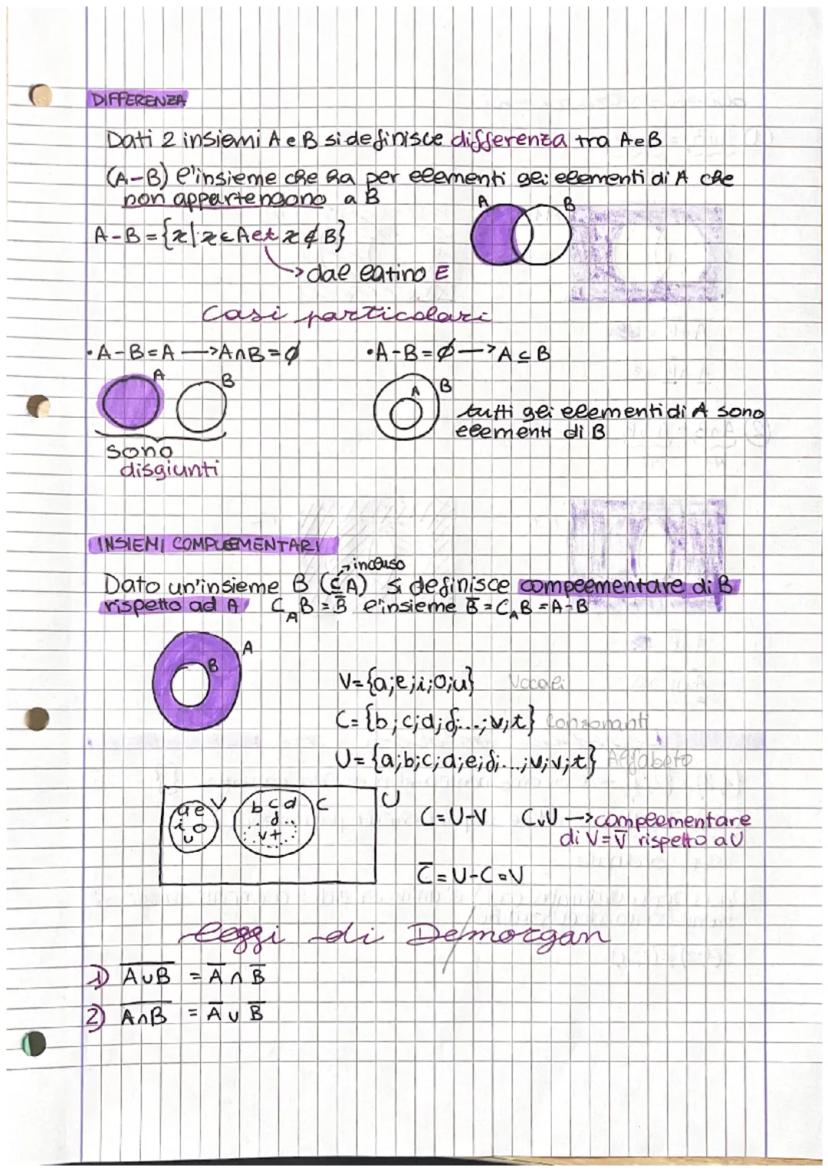 DIFFERENZA
Dati 2 insiemi A e B si definisce differenza tra A e B
(A-B) l'insieme che ha per elementi gli elementi di A che
non appartengono a B
A B
A-B={x|x∈A et x∉B}
→dal latino E
Casi particolari
•A-B=A →A∩B=∅ •A-B=∅→A⊆B
A B A B
tutti gli elementi di A sono
elementi di B
sono
disgiunti
INSIEMI COMPLEMENTARI
→incluso
Dato un'insieme B (⊆A) si definisce complementare di B
rispetto ad A C_A B = B̅ l'insieme B̅ = C_A B = A-B
A
B
V={a;e;i;o;u} Vocali
C={b;c;d;f;...;v;z} Consonanti
U={a;b;c;d;e;f;...;u;v;z} Alfabeto
a e i o u V b c d f.. v z C U
C=U-V C_V U →complementare
di V=V̅ rispetto a U
C̅=U-C=V
Leggi di Demorgan
1) A̅∪̅B̅ = A̅ ∩ B̅
2) A̅∩̅B̅ = A̅ ∪ B̅